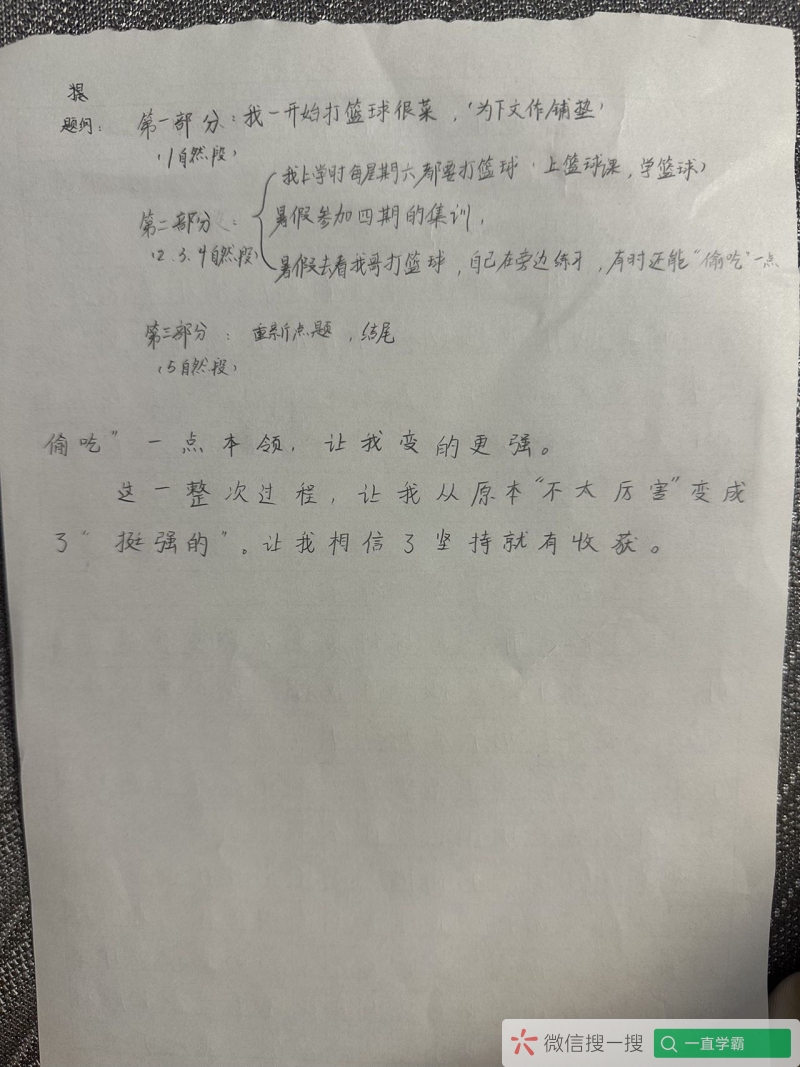 提
题纲：第一部分：我一开始打篮球很菜，（为下文作铺垫）
（1自然段）
我上学时每星期六都要打篮球（上篮球课，学篮球）
第二部分：暑假参加四期的集训，
（2.3.4自然段）
暑假去看我哥打篮球，自己在旁边练习，有时还能“偷吃”一点
第三部分：重新点题，结尾
（5自然段）
偷吃”一点本领，让我变的更强。
这一整次过程，让我从原本“不太厉害”变成
了“挺强的”。让我相信了坚持就有收获。
微信搜一搜 一直学霸